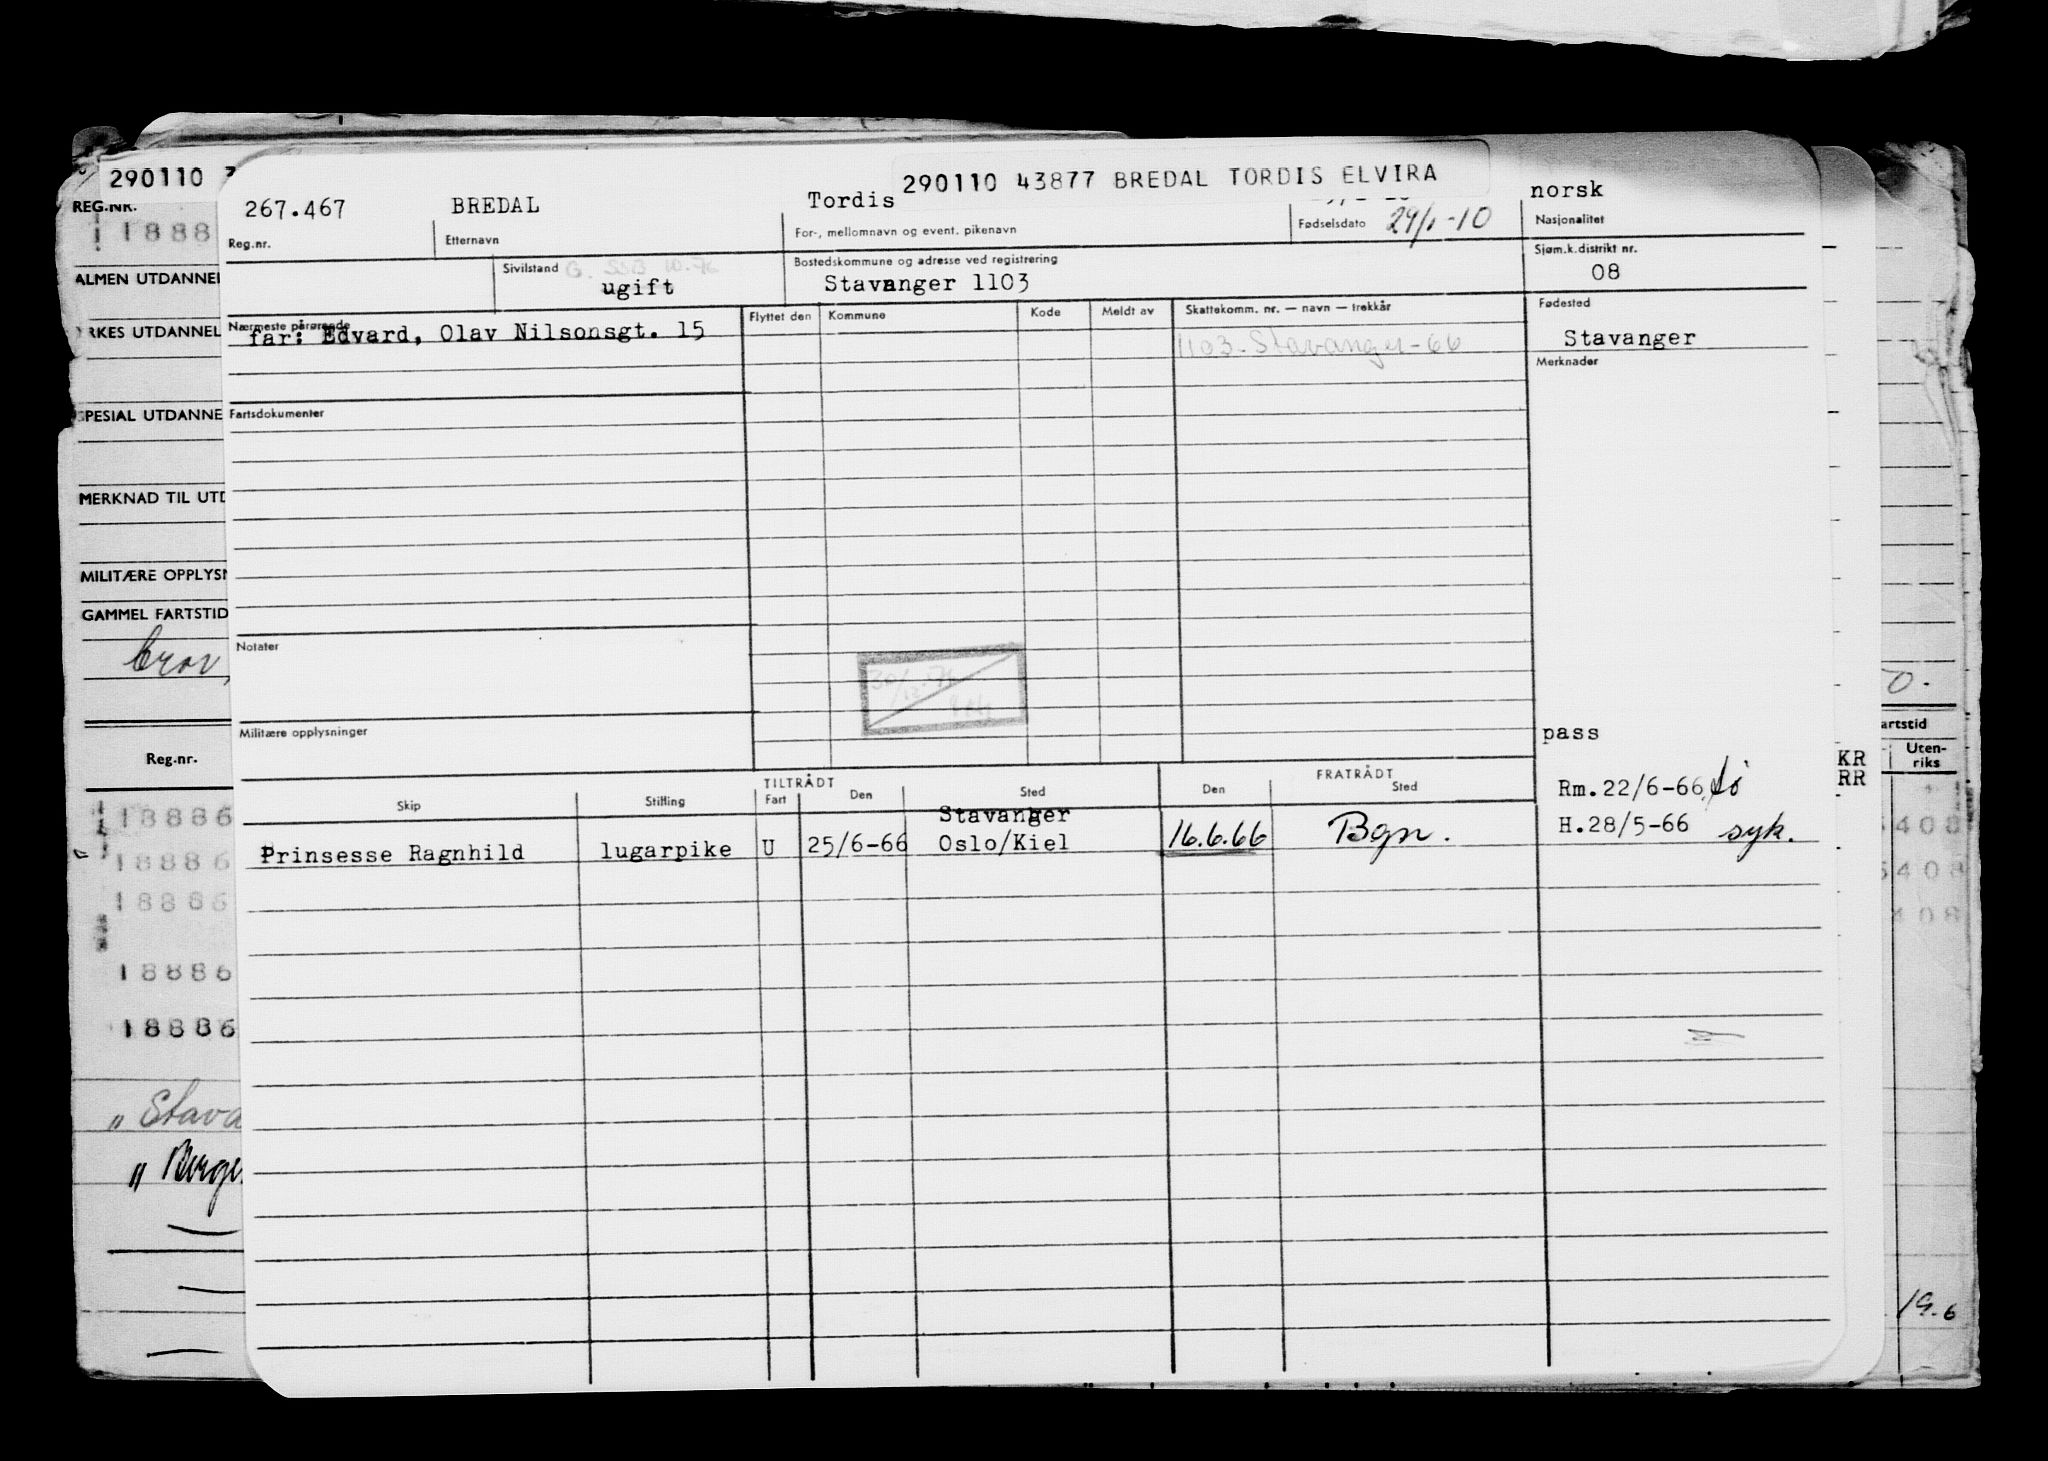 290110 43877 BREDAL TORDIS ELVIRA
267.467 BREDAL Tordis 29/1-10 norsk
Reg.nr. Etternavn For-, mellomnavn og event. pikenavn Fødselsdato Nasjonalitet
Sivilstand G. SSB 10.76 Bostedskommune og adresse ved registrering Sjøm.k.distrikt nr.
ugift Stavanger 1103 08
Nærmeste pårørende Flyttet den Kommune Kode Meldt av Skattekomm. nr. — navn — trekkår Fødested
far: Edvard, Olav Nilsonsgt. 15 1103-Stavanger-66 Stavanger
Merknader
Fartsdokumenter
Notater
Militære opplysninger
pass
TILTRÅDT FRATRÅDT
Skip Stilling Fart Den Sted Den Sted
Rm.22/6-66
Stavanger
Prinsesse Ragnhild lugarpike U 25/6-66 Oslo/Kiel 16.6.66 Bgn. H.28/5-66 syk.
290110
REG.NR.
1888
ALMEN UTDANNEL
RKES UTDANNEL
SPESIAL UTDANNE
MERKNAD TIL UTD
MILITÆRE OPPLYSN
GAMMEL FARTSTID
Reg.nr.
18886
18886
18886
18886
18886
" Stava
" Berge
0.
artstid
Uten-
riks
KR
RR
408
408
408
19.6